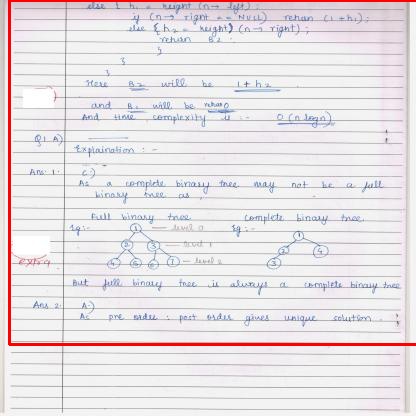 else { h1 = height (n → left);
if (n → right == NULL) return (1+h1);
else { h2 = height (n → right);
return B2.
}
}
}
Here B2 will be 1 + h2
and B1 will be return 0
And time complexity is :- O(n logn)
Q1 A)
Explaination : -
Ans. 1. C.)
As a complete binary tree may not be a full
binary tree as,
Full binary tree complete binary tree.
Eg :- 1 level 0 Eg :- 1
2 3 level 1 2 4
4 5 6 7 level 2 3
extra
But full binary tree is always a complete binary tree
Ans 2. A.)
As pre order : post order gives unique solution.